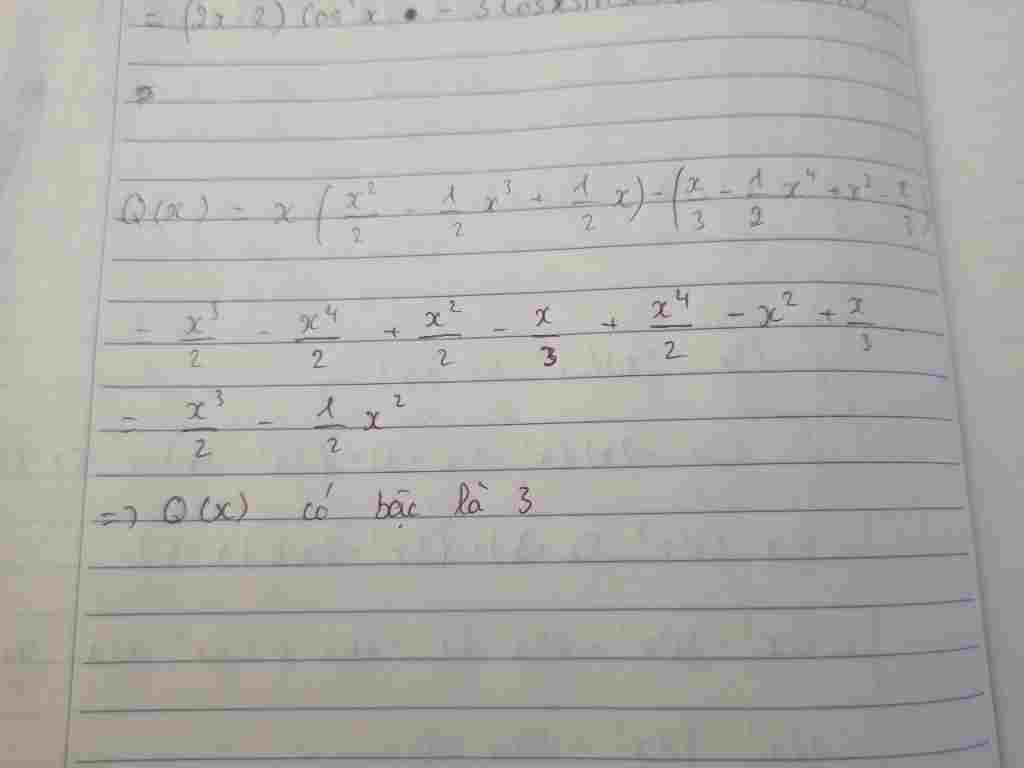 = (2x - 2) cos x • - 3 cos x
Q(x) = x (x²/2 - 1/2 x³ + 1/2 x) - (x/3 - 1/2 x⁴ + x² - x/3)
= x³/2 - x⁴/2 + x²/2 - x/3 + x⁴/2 - x² + x/3
= x³/2 - 1/2 x²
=> Q(x) có bậc là 3